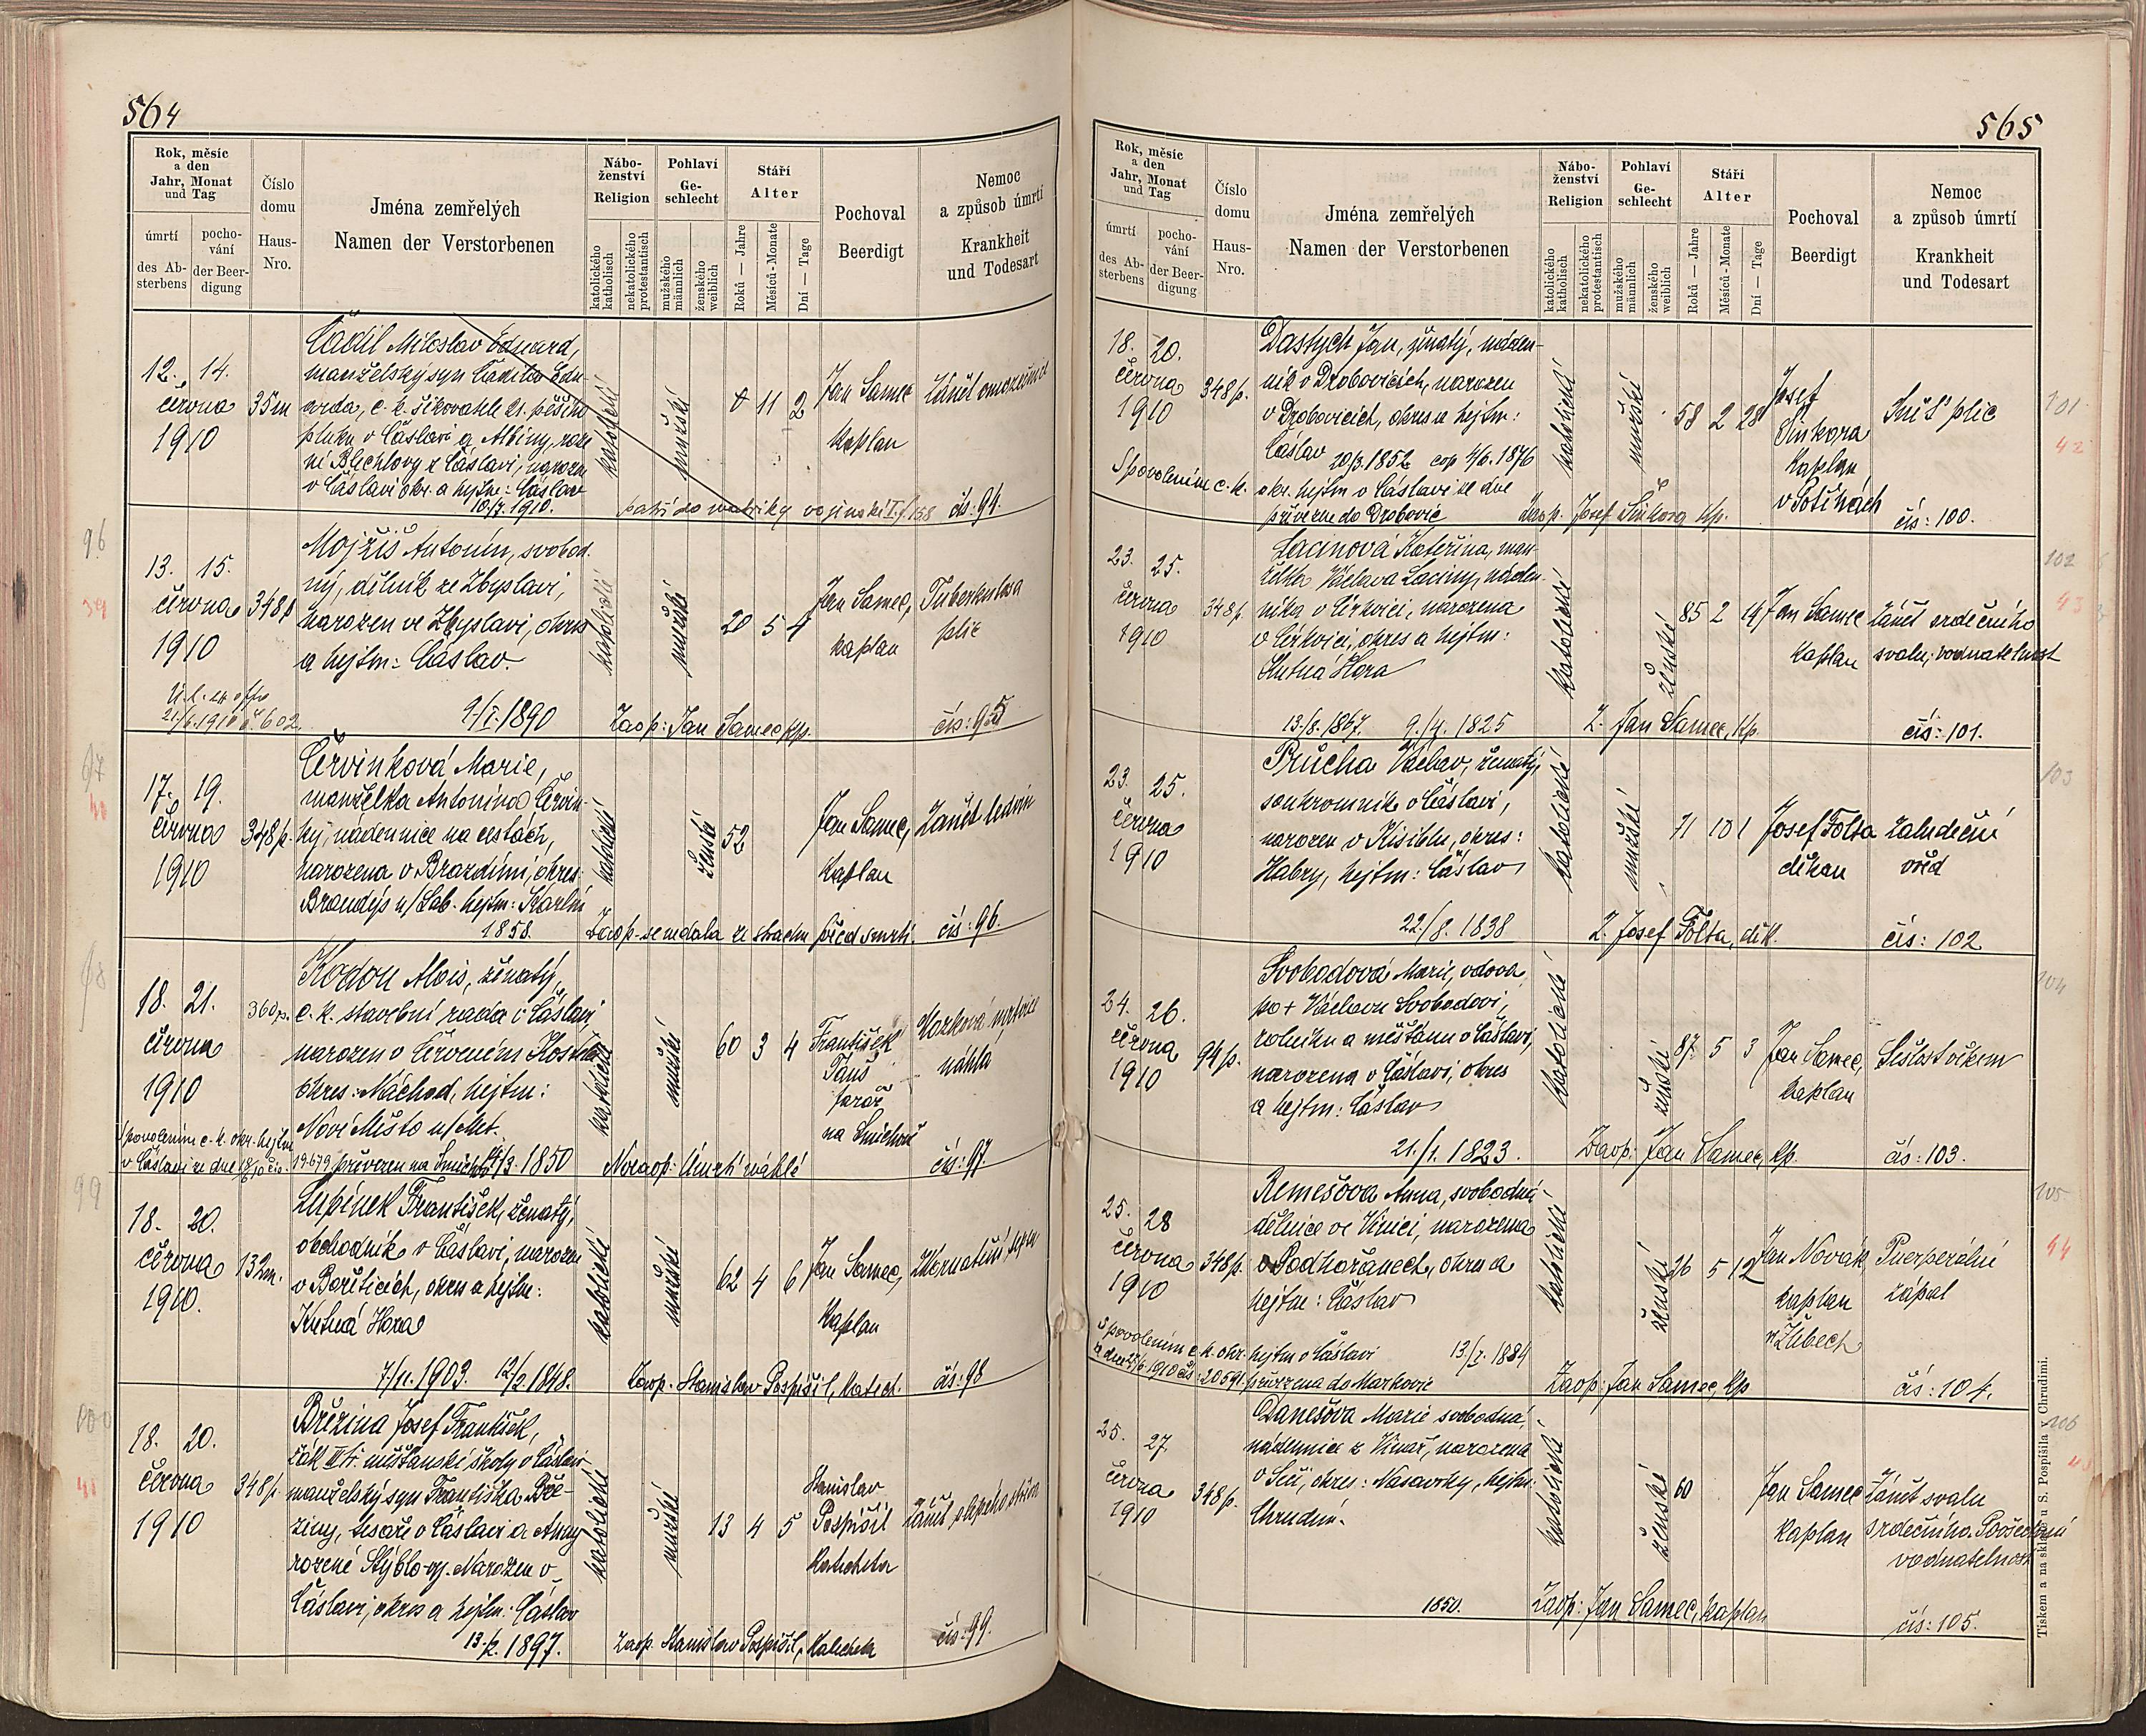 564
Rok, měsíc
a den
Jahr, Monat
und Tag
úmrtí
des Ab-
sterbens
pocho-
vání
der Beer-
digung
Číslo
domu
Haus-
Nro.
Jména zemřelých
Namen der Verstorbenen
Nábo-
ženství
Religion
katolického
katholisch
nekatolického
protestantisch
Pohlaví
Ge-
schlecht
mužského
männlich
ženského
weiblich
Stáří
Alter
Roků — Jahre
Měsíců - Monate
Dní — Tage
Pochoval
Beerdigt
Nemoc
a způsob úmrtí
Krankheit
und Todesart
12. 14.
června
1910
35m
Čadil Miloslav Eduard,
manželský syn Čadila Edu-
arda, c. k. šikovatele 21. pěšího
pluku v Čáslavi a Albiny, roze-
né Blechlovy z Čáslavi, narozen
v Čáslavi okr. a hejtm: Čáslav
10./7. 1910.
katolické
mužské
0 11 2
Jan Samec
kaplan
Zánět
patří do matriky vojenské I./158
čís: 94.
96
39
13. 15.
června
1910
348p
Mojžíš Antonín, svobod-
ný, dělník ze Zbyslavi,
narozen ve Zbyslavi, okres
a hejtm: Čáslav.
katolické
mužské
20 5 4
Jan Samec,
kaplan
Tuberkulosa
plic
21./6. 1910 č. 602.
9./I. 1890
Zaop: Jan Samec kp.
čís: 95
97
40
17. 19.
června
1910
348p.
Červinková Marie,
manželka Antonína Červin-
ky, nádenníce na cestách,
narozena v Brazdími, okres:
Brandýs n/Lab. hejtm: Karlín
1858.
katolické
ženské
52
Jan Samec,
kaplan
Zánět ledvin
Zaop. se nedala ze strachu před smrtí.
čís: 96.
98
18. 21.
června
1910
360p.
Kodou Alois, ženatý,
c. k. stavební rada v Čáslavi,
narozen v Červeném Kostelci
okres: Náchod, hejtm:
Nové Město n/Met.
katolické
mužské
60 3 4
František
Tauš
farář
na Smíchově
mrtvice
náhlá
S povolením c. k. okr. hejtm
v Čáslavi ze dne 18/6 10 čís. 19679 převezen na Smíchov 14/3. 1850
Nezaop: Úmrtí náhlé
čís: 97.
99
18. 20.
června
1910.
132m.
Lupínek František, ženatý,
obchodník v Čáslavi, narozen
v Bořeticích, okres a hejtm:
Kutná Hora
katolické
mužské
62 4 6
Jan Samec,
kaplan
Zkornatění tepen
7./11. 1903. 12/2. 1848.
Zaop. Stanislav Pospíšil, katech.
čís: 98
100
41
18. 20.
června
1910
348p
Březina Josef František,
žák III tř. měšťanské školy v Čáslavi
manželský syn Františka Bře-
ziny, tesaře v Čáslavi a Anny
rozené Stýblovy. Narozen v
Čáslavi, okres a hejtm: Čáslav
13./2. 1897.
katolické
mužské
13 4 5
Stanislav
Pospíšil
katecheta
Zánět slepého střeva
Zaop. Stanislav Pospíšil, katecheta
čís: 99.
565
Rok, měsíc
a den
Jahr, Monat
und Tag
úmrtí
des Ab-
sterbens
pocho-
vání
der Beer-
digung
Číslo
domu
Haus-
Nro.
Jména zemřelých
Namen der Verstorbenen
Nábo-
ženství
Religion
katolického
katholisch
nekatolického
protestantisch
Pohlaví
Ge-
schlecht
mužského
männlich
ženského
weiblich
Stáří
Alter
Roků — Jahre
Měsíců - Monate
Dní — Tage
Pochoval
Beerdigt
Nemoc
a způsob úmrtí
Krankheit
und Todesart
18. 20.
června
1910
348p.
Dastych Jan, ženatý, náden-
ník v Drobovicích, narozen
v Drobovicích, okres a hejtm:
Čáslav 20/3. 1852 cop 4/6. 1876
S povolením c. k. okr. hejtm v Čáslavi ze dne
převezen do Drobovic
katolické
mužské
58 2 28
Josef
Sinkora
kaplan
v Potěhách
Sněť plic
Zaop. Josef Sinkora kp.
čís: 100.
101
42
23. 25.
června
1910
348p.
Lacinová Kateřina, man-
želka Václava Laciny, náden-
níka v Církvici, narozena
v Církvici, okres a hejtm:
Kutná Hora
katolické
ženské
85 2 14
Jan Samec
kaplan
Zánět srdečního
svalu; vodnatelnost
13./8. 1867. 9./4. 1825
Z. Jan Samec, kp.
čís: 101.
102
43
23. 25.
června
1910
Průcha Václav, ženatý,
soukromník v Čáslavi,
narozen v Kisiblu, okres:
Habry, hejtm: Čáslav
katolické
mužské
71 10 1
Josef Folta
děkan
Žaludeční
vřed
22./8. 1838
Z. Josef Folta, děk.
čís: 102
103
24. 26.
června
1910
94p.
Svobodová Marie, vdova
po + Václavu Svobodovi,
rolníku a měšťanu v Čáslavi,
narozena v Čáslavi, okres
a hejtm: Čáslav
katolické
ženské
87 5 3
Jan Samec,
kaplan
Sešlost věkem
21./1. 1823.
Zaop: Jan Samec, kp.
čís: 103.
104
25. 28
června
1910
348p.
Remešova Anna, svobodná
dělnice ve Vinici, narozena
v Podhořanech, okres a
hejtm: Čáslav
katolické
ženské
26 5 12
Jan Novák
kaplan
v Žlebech
Puerperální
zápal
S povolením c. k. okr. hejtm v Čáslavi 13./I. 1884
ze dne 27/6. 1910 čís: 20591 převezena do Markovic
Zaop: Jan Samec, kp
čís: 104.
105
44
25. 27
června
1910
348p.
Danešova Marie svobodná,
nádennice z Vinař, narozená
v Seči, okres: Nasavrky, hejtm:
Chrudim.
katolické
ženské
60
Jan Samec
kaplan
Zánět svalu
srdečního. Povšechná
vodnatelnost
1850.
Zaop: Jan Samec, kaplan
čís: 105.
106
Tiskem a na skladě u S. Pospíšila v Chrudimi.